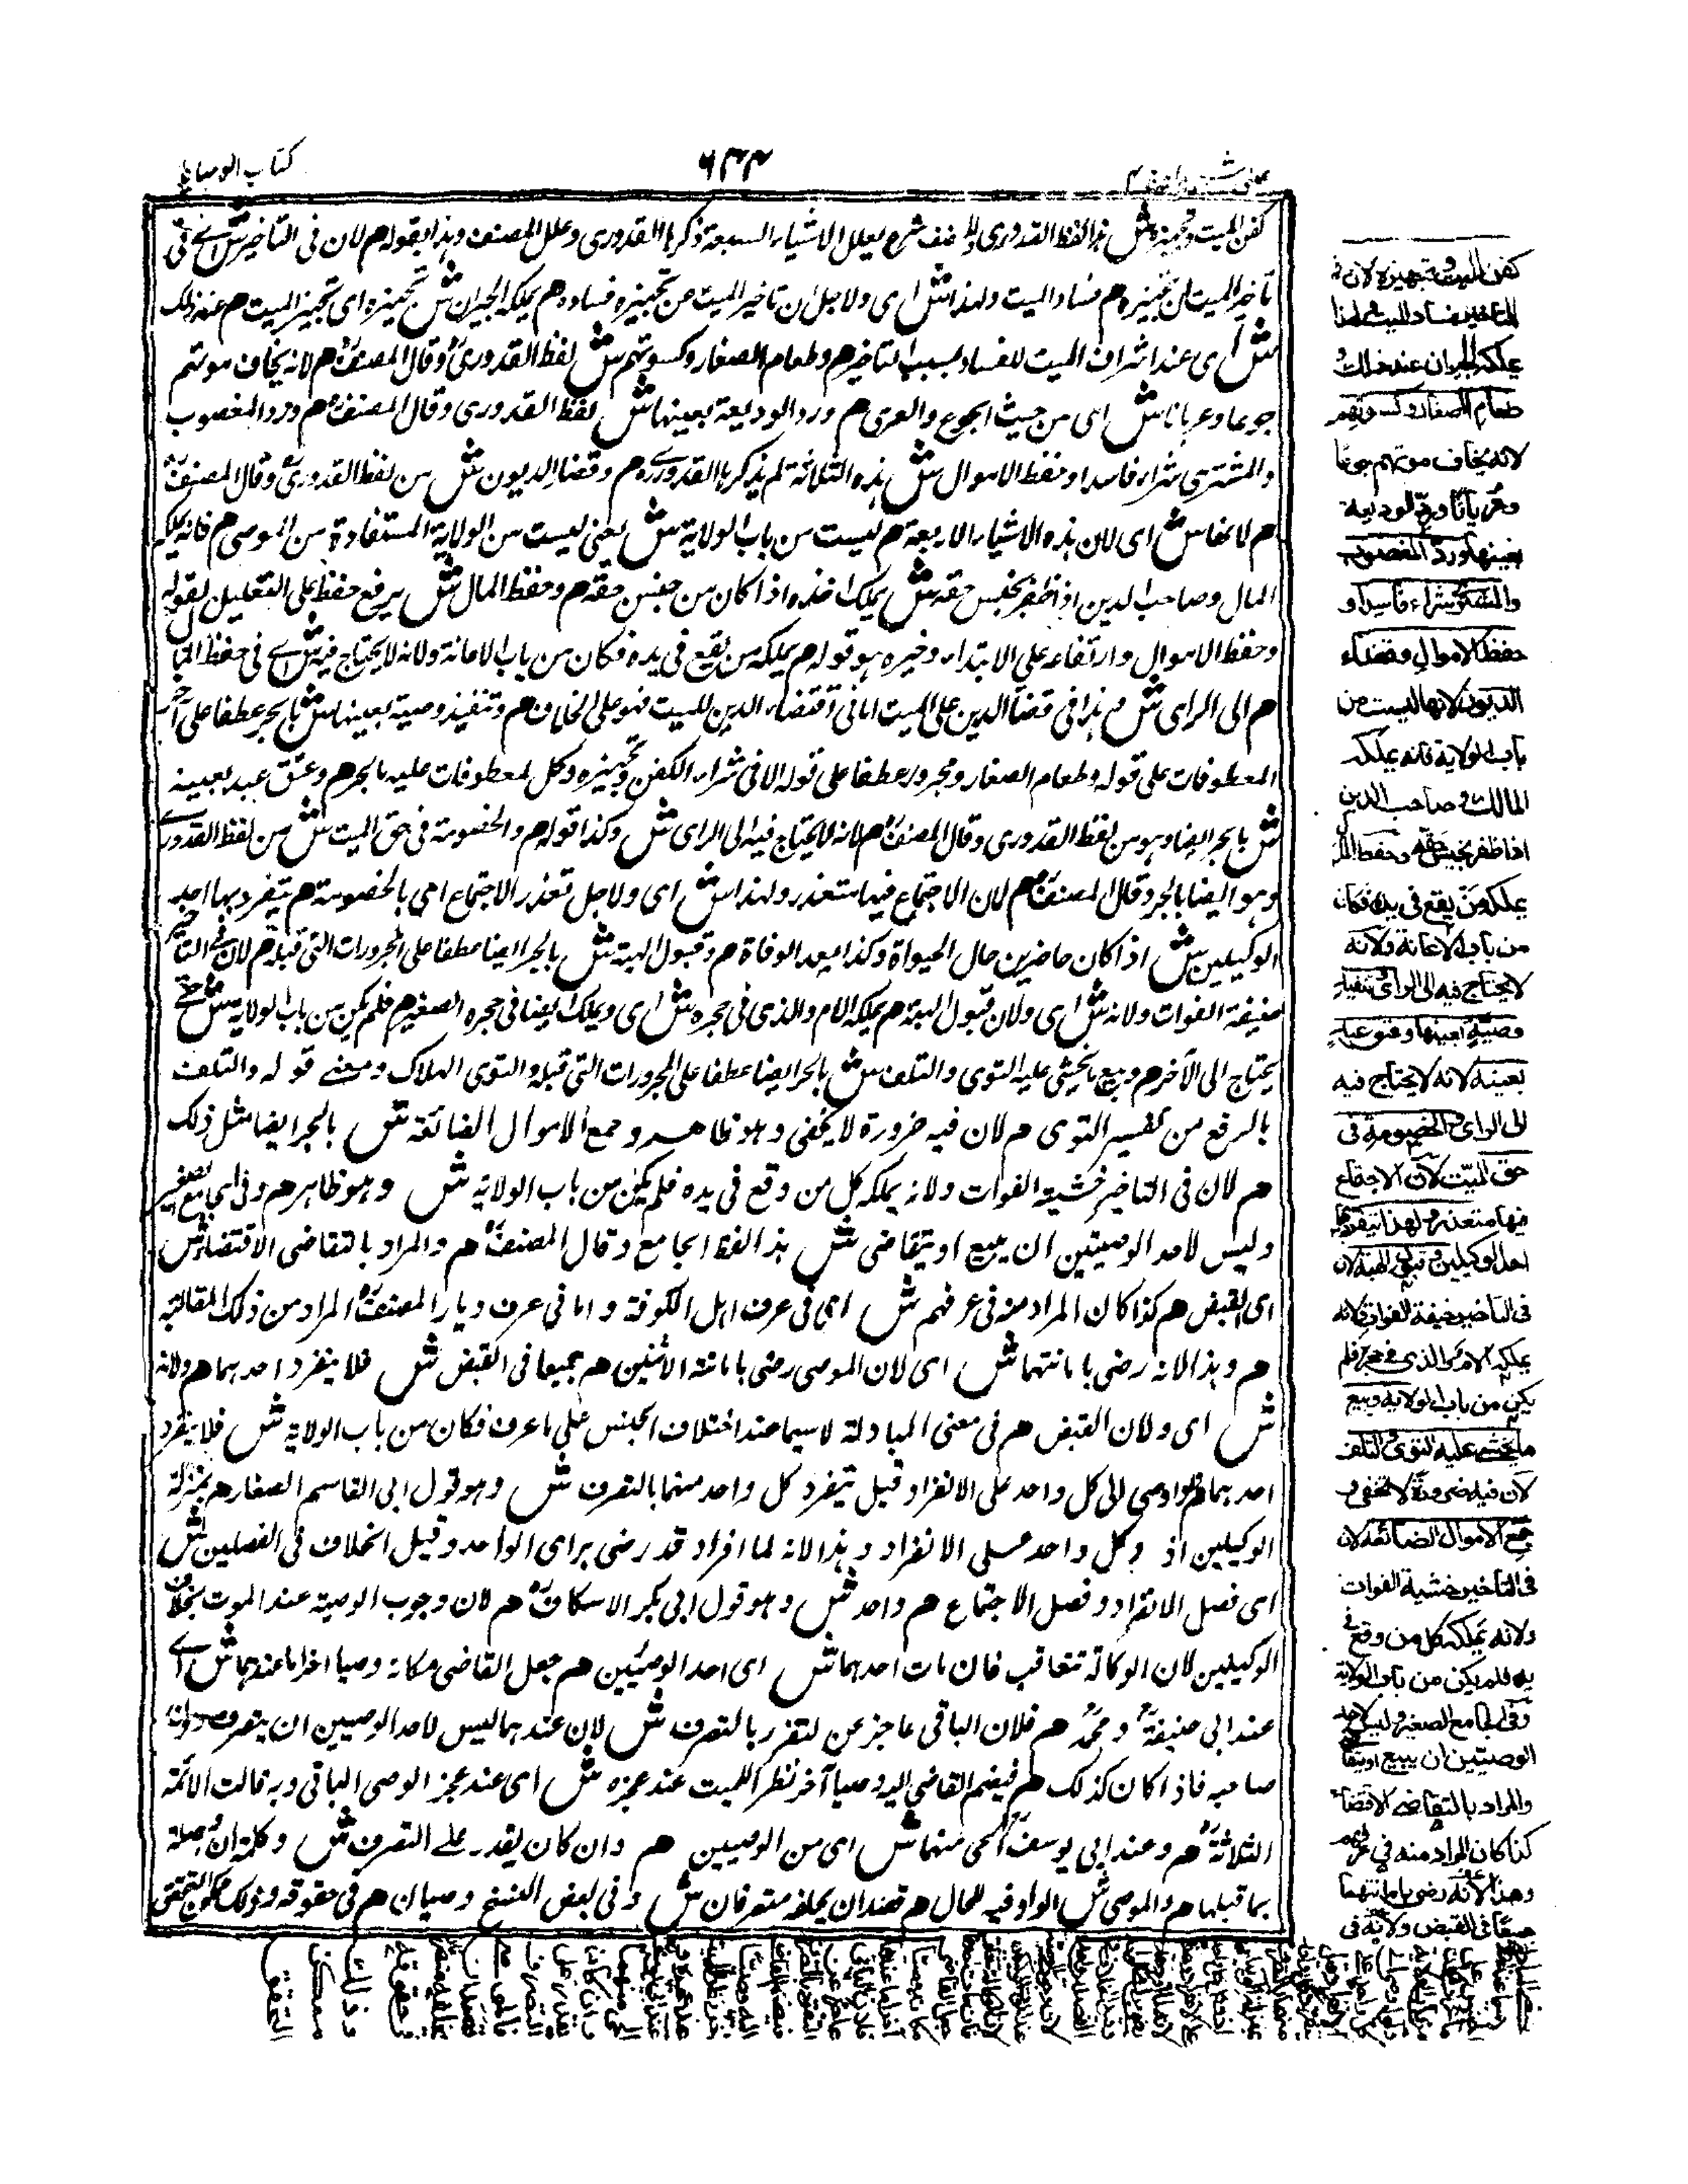 كتاب الوصايا
٦٣٤
كفن الميت وتجهيزه ش هذا لفظ القدوري والمصنف شرع يعلل الاشياء السبعة ذكرها القدوري وعلل المصنف وهذا بقوله م لان في التأخير ش اي في
تأخير الميت عن تجهيزه م فساد الميت ولهذا ش اي ولاجل ان تاخير الميت من تجهيزه فساده م يملكه الجيران ش تجهيزه اي تجهيز الميت م عند ذلك
ش اي عند اشراف الميت للفساد بسبب التاخير م وطعام الصغار وكسوتهم ش لفظ القدوري وقال المصنف م لانه يخاف موتهم
جوعا وعريانا ش اي من حيث الجوع والعرى م ورد الوديعة بعينها ش لفظ القدوري وقال المصنف م ورد المغصوب
والمشتري شراء فاسدا وحفظ الاموال ش هذه الثلاثة لم يذكرها القدوري م وقضاء الديون ش من لفظ القدوري وقال المصنف
م لانها ش اي لان هذه الاشياء الاربعة م ليست من باب الولاية ش يعني ليست من الولاية المستفادة من الموصي م فانه يملكه
المال وصاحب الدين اذا ظفر بجنس حقه ش يملك اخذه اذا كان من جنس حقه م وحفظ المال ش يرفع حفظ على التعليل لقوله
وحفظ الاموال وارتفاعه على الابتداء وخبره هو قوله م يملكه من يقع في يده فكان من باب الامانة ولانه لا يحتاج فيه ش اي في حفظ المال
م الى الراى ش م هذا في قضاء الدين على الميت اما في اقتضاء الدين للميت فهو على الخلاف م وتنفيذ وصية بعينها ش بالجر عطفا على آخر
المعطوفات على قوله وطعام الصغار ومجرور عطفا على قوله الا في شراء الكفن وتجهيزه وكل المعطوفات عليه بالجر م وعتق عبد بعينه
ش بالجر ايضا وهو من لفظ القدوري وقال المصنف م لانه لا يحتاج فيه الى الراى ش وكذا قوله م والخصومة في حق الميت ش من لفظ القدوري
وهو ايضا بالجر وقال المصنف م لان الاجتماع فيها متعذر ولهذا ش اي ولاجل تعذر الاجتماع اي بالخصومة م يتفرد بها احد
الوكيلين ش اذا كان حاضرين حال الحيواة وكذا بعد الوفاة م وقبول الهبة ش بالجر ايضا عطفا على المجرورات التي قبله م لان في التاخير
خيفة الفوات ولانه ش اي ولان قبول الهبة م يملكه الام والذي في حجره ش اي ويملك ايضا في حجره الصغير م فلم يكن من باب الولاية ش حتى
يحتاج الى الآخر م وبيع ما يخشى عليه التوى والتلف ش بالجر ايضا عطفا على المجرورات التي قبله والتوى الهلاك ومعنى قوله والتلف
بالرفع من تفسير التوى م لان فيه ضرورة لا يخفى وهو ظاهر وجمع الاموال الضائعة ش بالجر ايضا مثل ذلك
م لان في التاخير خشية الفوات ولانه يملكه كل من وقع في يده فلم يكن من باب الولاية ش وهو ظاهر م وفي الجامع الصغير
وليس لاحد الوصيين ان يبيع او يتقاضى ش هذا لفظ الجامع وقال المصنف م والمراد بالتقاضي الاقتضاء ش
اي القبض م كذا كان المراد منه في عرفهم ش اي في عرف اهل الكوفة واما في عرف ديار المصنف المراد من ذلك المطالبة
م وهذا لانه رضي بامانتهما ش اي لان الموصي رضي بامانة الاثنين م جميعا في القبض ش فلا ينفرد احدهما م ولانه
ش اي ولان القبض م في معنى المبادلة لاسيما عند اختلاف الجنس على ما عرف فكان من باب الولاية ش فلا ينفرد
احدهما م ولو اوصى الى كل واحد على الانفراد قيل يتفرد كل واحد منهما بالتصرف ش وهو قول ابي القاسم الصفار م بمنزلة
الوكيلين اذ وكل واحد على الانفراد وهذا لانه لما افراد قد رضي براى الواحد وقيل الخلاف في الفصلين ش
اي فصل الانفراد وفصل الاجتماع م واحد ش وهو قول ابي بكر الاسكاف م لان وجوب الوصية عند الموت بخلاف
الوكيلين لان الوكالة تتعاقب فان مات احدهما ش اي احد الوصيين م جعل القاضي مكانه وصيا اخر اما عندهما ش اي
عند ابي حنيفة ومحمد م فلان الباقي عاجز عن لتفرد بالتصرف ش لان عندهما ليس لاحد الوصيين ان يتصرف دون
صاحبه فاذا كان كذلك م فيضم القاضي اليه وصيا آخر نظرا للميت عند عجزه ش اي عند عجز الوصي الباقي وبه قالت الائمة
الثلاثة م وعند ابي يوسف الحي منهما ش اي من الوصيين م وان كان يقدر على التصرف ش وكلمة ان وصلة
بما قبلها م والموصي ش الواو فيه للحال م قصد ان يخلفه متصرفان ش وفي بعض النسخ وصيان م في حقوقه وذلك ممكن التحقق
كفن الميت وتجهيزه لان في
التاخير فساد الميت ولهذا
يملكه الجيران عند ذلك و
طعام الصغار وكسوتهم
لانه يخاف موتهم جوعا
وعريانا ورد الوديعة
بعينها ورد المغصوب
والمشترى شراء فاسدا و
حفظ الاموال وقضاء
الديون لانها ليست من
باب الولاية فانه يملكه
المالك وصاحب الدين
اذا ظفر بجنس حقه وحفظ المال
يملكه من يقع في يده فكان
من باب الاعانة ولانه
لا يحتاج فيه الى الراى وتنفيذ
وصية بعينها وعتق عبد
بعينه لانه لا يحتاج فيه
الى الراى والخصومة في
حق الميت لان الاجتماع
فيها متعذر ولهذا يتفرد بها
احد الوكيلين وقبول الهبة لان
في التاخير خيفة الفوات ولانه
يملكه الام والذي في حجره فلم
يكن من باب الولاية وبيع
ما يخشى عليه التوى والتلف
لان فيه ضرورة لا تخفى و
جمع الاموال الضائعة لان
في التاخير خشية الفوات
ولانه يملكه كل من وقع في
يده فلم يكن من باب الولاية
وفي الجامع الصغير وليس لاحد
الوصيين ان يبيع او يتقاضى
والمراد بالتقاضي الاقتضاء
كذا كان المراد منه في عرفهم
وهذا لانه رضي بامانتهما
جميعا في القبض ولانه في